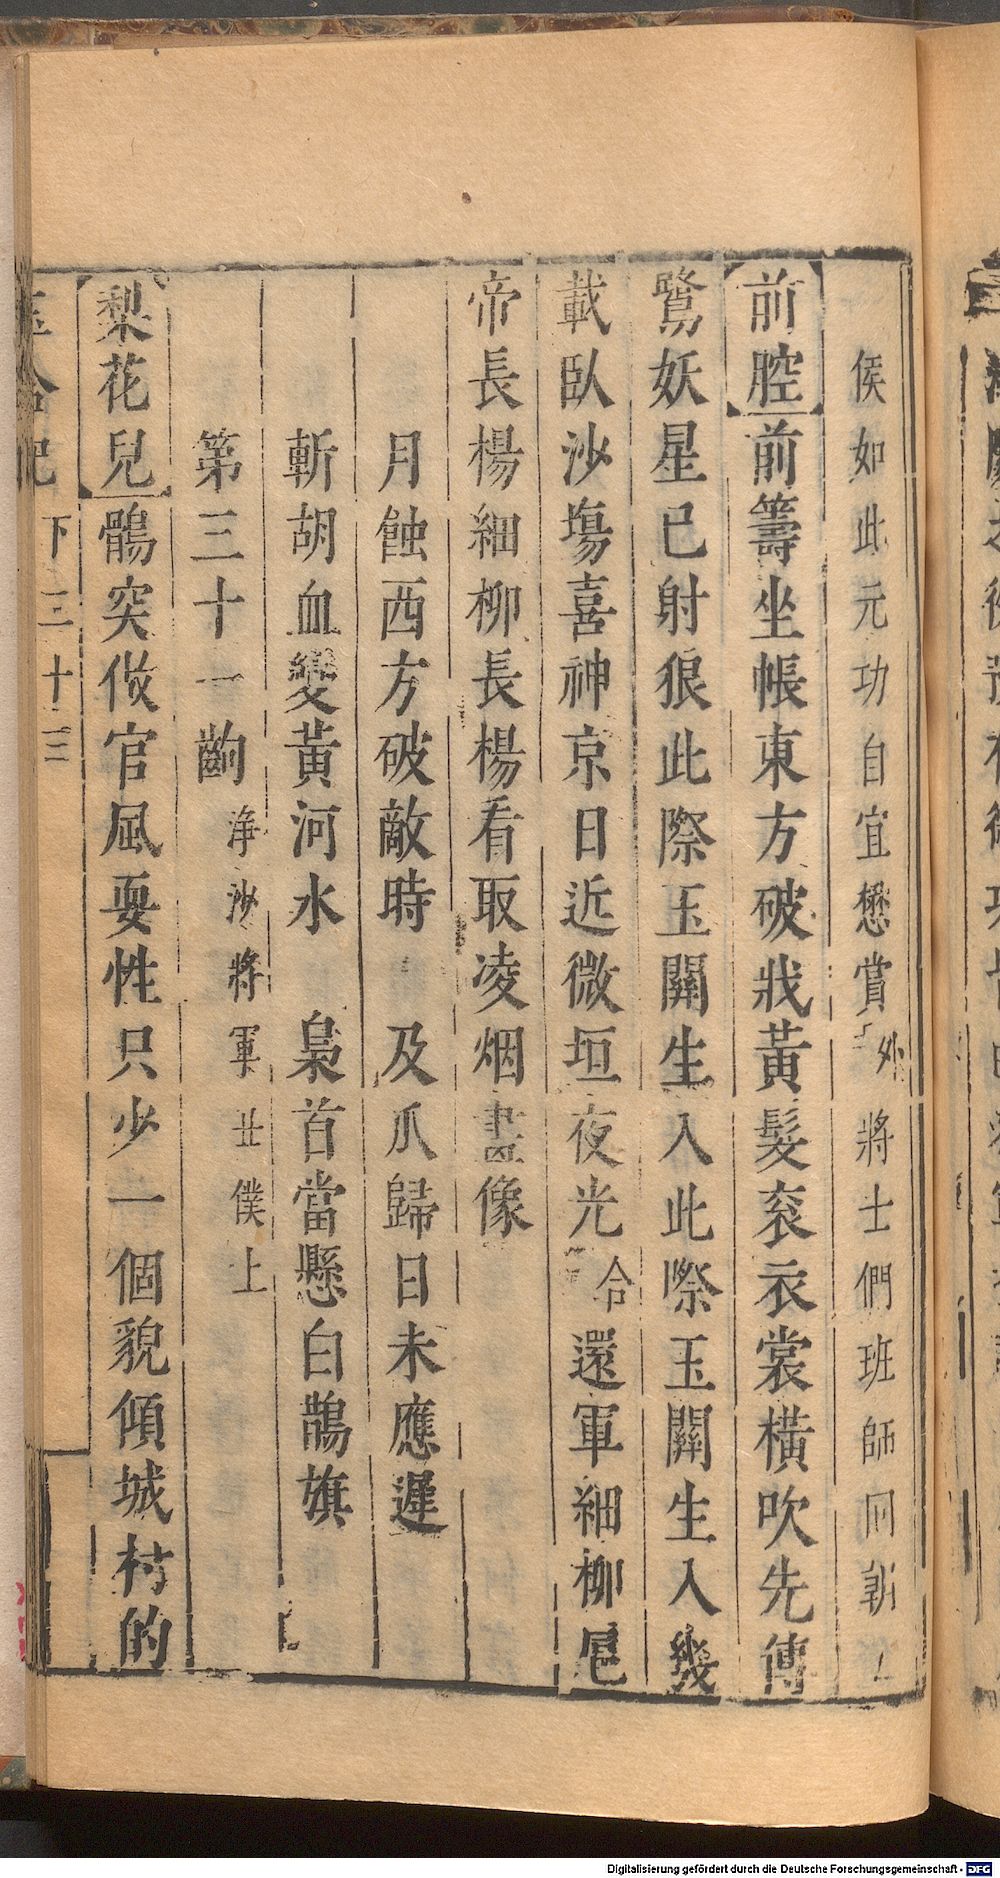 侯如此元功自宜懋賞外將士們班師回朝
前腔前籌坐帳東方破戕黃髮袞衣裳橫吹先傳
鷟妖星已射狼此際玉關生入此際玉關生入幾
載臥沙塲喜神京日近微垣夜光合還軍細柳
帝長楊細柳長楊看取凌烟畫像
月蝕西方破敵時 及爪歸日未應遲
斬胡血變黃河水 梟首當懸白鵲旗
第三十一齣淨沙將軍丑僕上
梨花兒鶻突做官風耍性只少一個貌傾城村的
玉合記 下 三十三
Digitalisierung gefördert durch die Deutsche Forschungsgemeinschaft - DFG